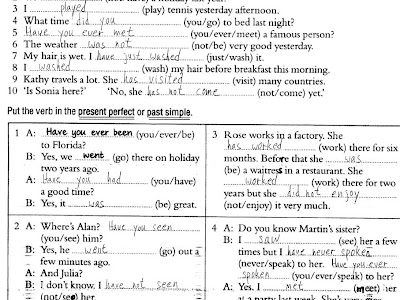 3 I played (play) tennis yesterday afternoon.
4 What time did you (you/go) to bed last night?
5 Have you ever met (you/ever/meet) a famous person?
6 The weather was not (not/be) very good yesterday.
7 My hair is wet. I have just washed (just/wash) it.
8 I washed (wash) my hair before breakfast this morning.
9 Kathy travels a lot. She has visited (visit) many countries.
10 'Is Sonia here?' 'No, she has not come (not/come) yet.'
Put the verb in the present perfect or past simple.
1 A: Have you ever been (you/ever/be)
to Florida?
B: Yes, we went (go) there on holiday
two years ago.
A: Have you had (you/have)
a good time?
B: Yes, it was (be) great.
2 A: Where's Alan? Have you seen
(you/see) him?
B: Yes, he went (go) out a
few minutes ago.
A: And Julia?
B: I don't know. I have not seen
(not/see) her.
3 Rose works in a factory. She
has worked (work) there for six
months. Before that she was
(be) a waitress in a restaurant. She
worked (work) there for two
years but she did not enjoy
(not/enjoy) it very much.
4 A: Do you know Martin's sister?
B: I saw (see) her a few
times but I have never spoken
(never/speak) to her. Have you ever
spoken (you/ever/speak) to her?
A: Yes. I met (meet) her
at a party last week. She's very